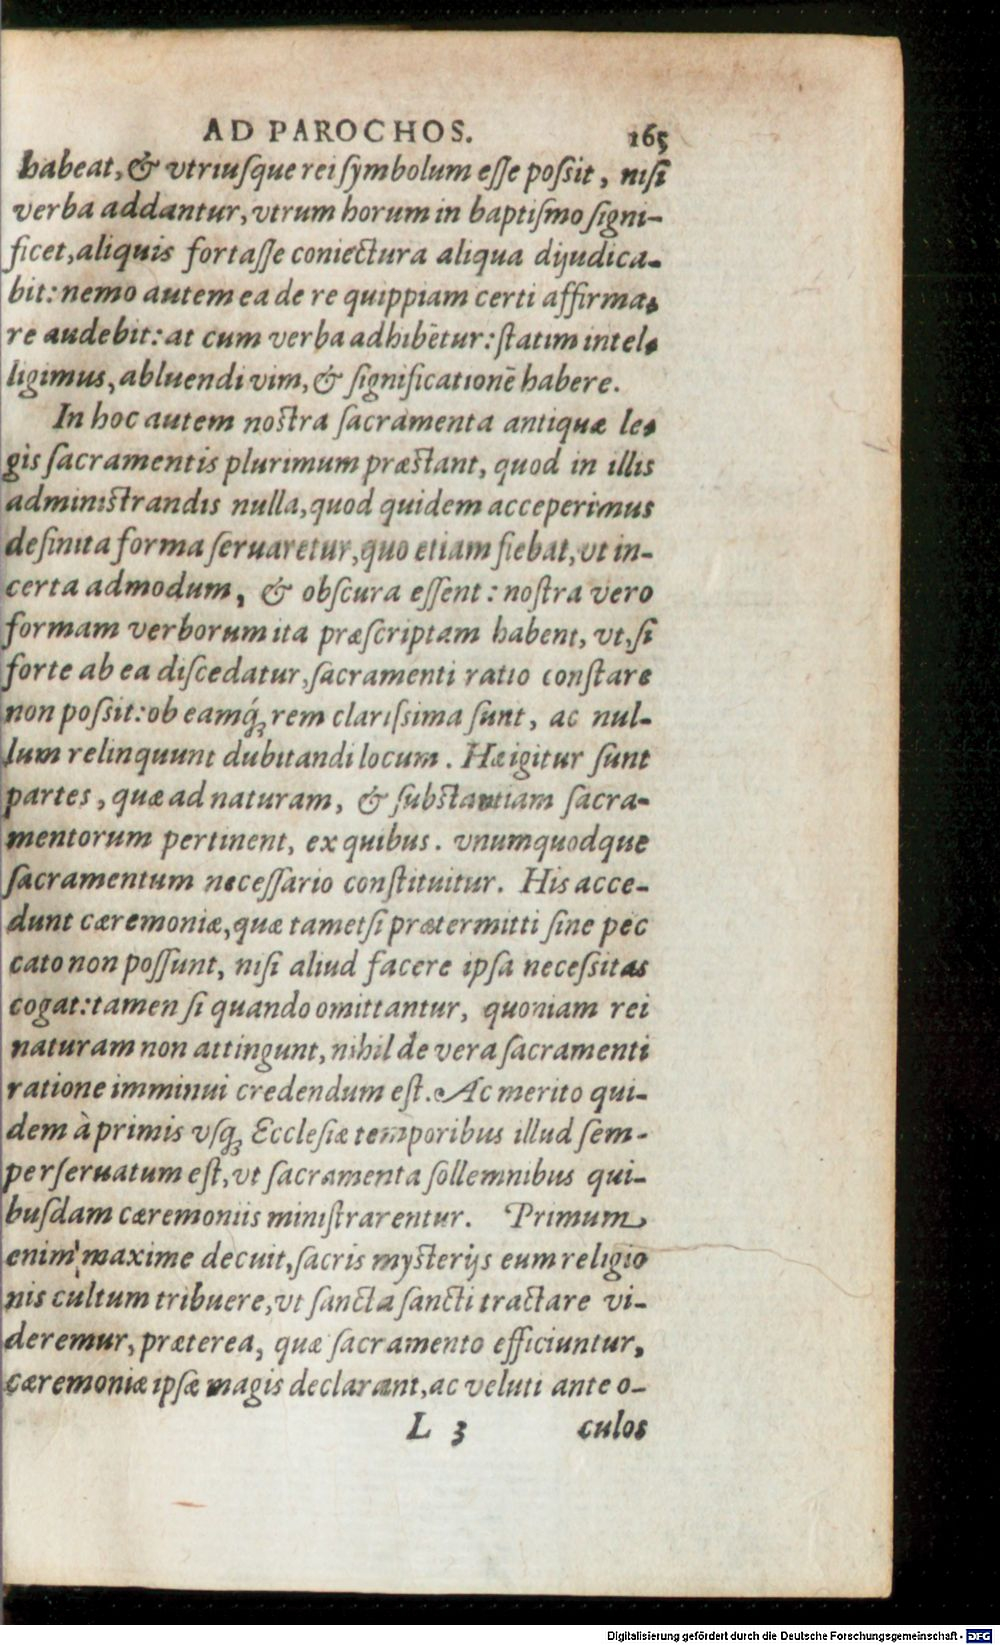 AD PAROCHOS. 165
habeat, & vtriuſque rei ſymbolum eſſe poſsit, niſi
verba addantur, vtrum horum in baptiſmo ſigni-
ficet, aliquis fortaſſe coniectura aliqua dijudica-
bit: nemo autem ea de re quippiam certi affirma-
re audebit: at cum verba adhibētur: ſtatim intel-
ligimus, abluendi vim, & ſignificationē habere.
In hoc autem noſtra ſacramenta antiquæ le-
gis ſacramentis plurimum præſtant, quod in illis
adminiſtrandis nulla, quod quidem acceperimus
definita forma ſeruaretur, quo etiam fiebat, vt in-
certa admodum, & obſcura eſſent: noſtra vero
formam verborum ita præſcriptam habent, vt, ſi
forte ab ea diſcedatur, ſacramenti ratio conſtare
non poſsit: ob eamq́; rem clariſsima ſunt, ac nul-
lum relinquunt dubitandi locum. Hæ igitur ſunt
partes, quæ ad naturam, & ſubſtantiam ſacra-
mentorum pertinent, ex quibus. vnumquodque
ſacramentum neceſſario conſtituitur. His acce-
dunt cæremoniæ, quæ tametſi prætermitti ſine pec
cato non poſſunt, niſi aliud facere ipſa neceſsitas
cogat: tamen ſi quando omittantur, quoniam rei
naturam non attingunt, nihil de vera ſacramenti
ratione imminui credendum eſt. Ac merito qui-
dem à primis vſq; Eccleſiæ temporibus illud ſem-
per ſeruatum eſt, vt ſacramenta ſollemnibus qui-
buſdam cæremoniis miniſtrarentur. Primum
enim maxime decuit, ſacris myſterijs eum religio
nis cultum tribuere, vt ſancta ſancti tractare vi-
deremur, præterea, quæ ſacramento efficiuntur,
cæremoniæ ipſæ magis declarant, ac veluti ante o-
L 3 culos
Digitalisierung gefördert durch die Deutsche Forschungsgemeinschaft - DFG